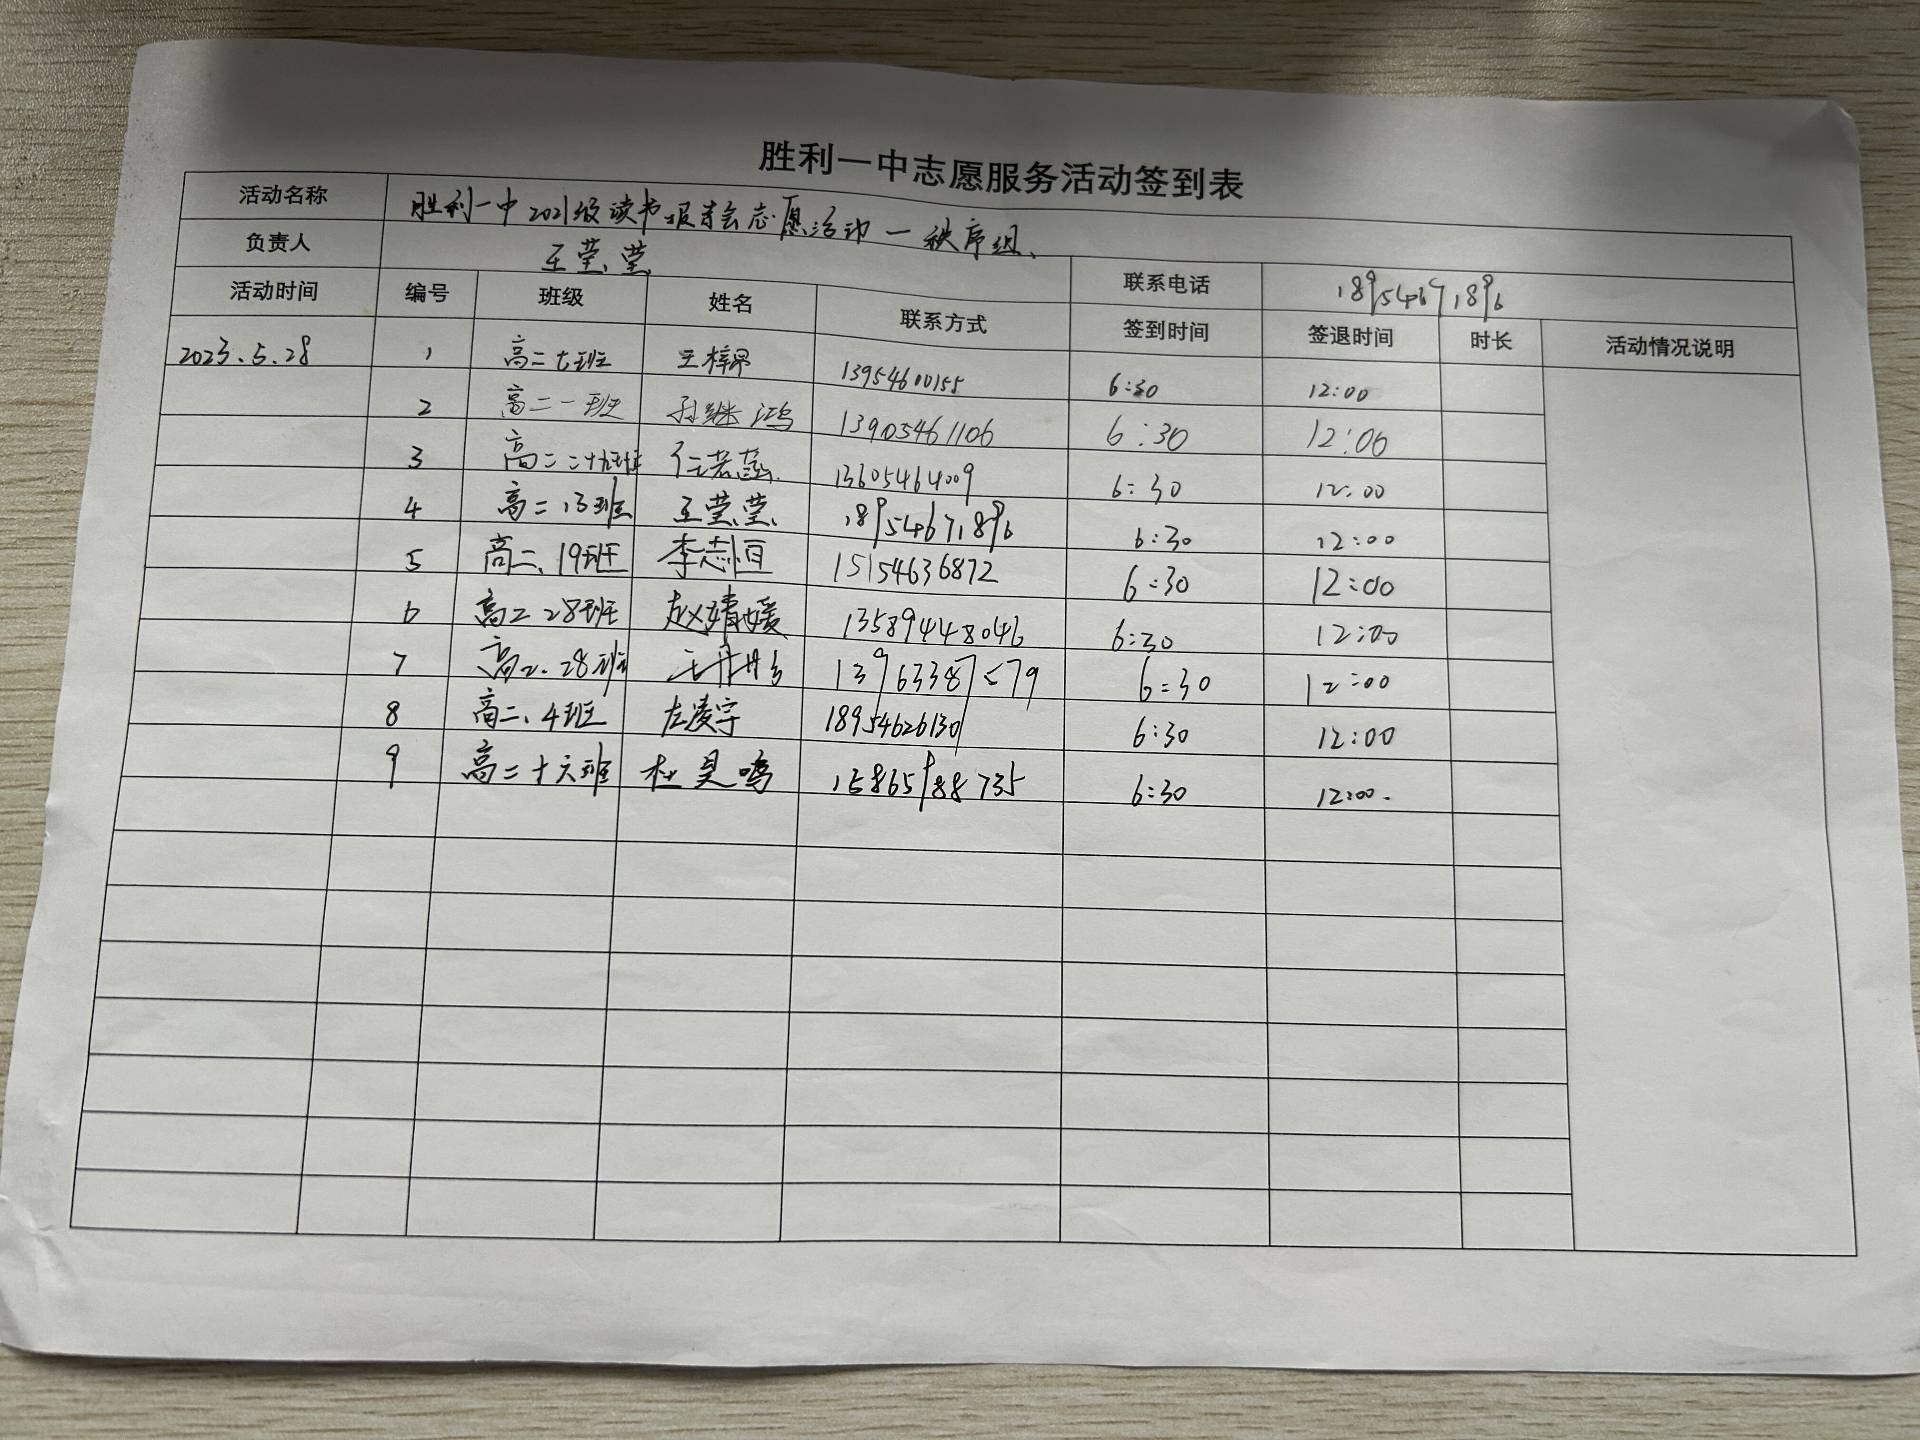 胜利一中志愿服务活动签到表
活动名称 胜利一中2021级读书报告会志愿活动—秩序组、
负责人 王莹莹 联系电话 18954671896
活动时间 编号 班级 姓名 联系方式 签到时间 签退时间 时长 活动情况说明
2023.5.28 1 高二七班 王梓 13954600155 6:30 12:00
2 高二一班 孙继鸿 13905461106 6:30 12:00
3 高二二十九班 任若菡 13605464009 6:30 12:00
4 高二13班 王莹莹 18954671896 6:30 12:00
5 高二、19班 李志恒 15154636872 6:30 12:00
6 高二28班 赵婧媛 13589448046 6:30 12:00
7 高二、28班 王丹彤 6:30 12:00
8 高二、4班 左凌宇 18954626130 6:30 12:00
9 高二十六班 杜昊鸣 6:30 12:00.